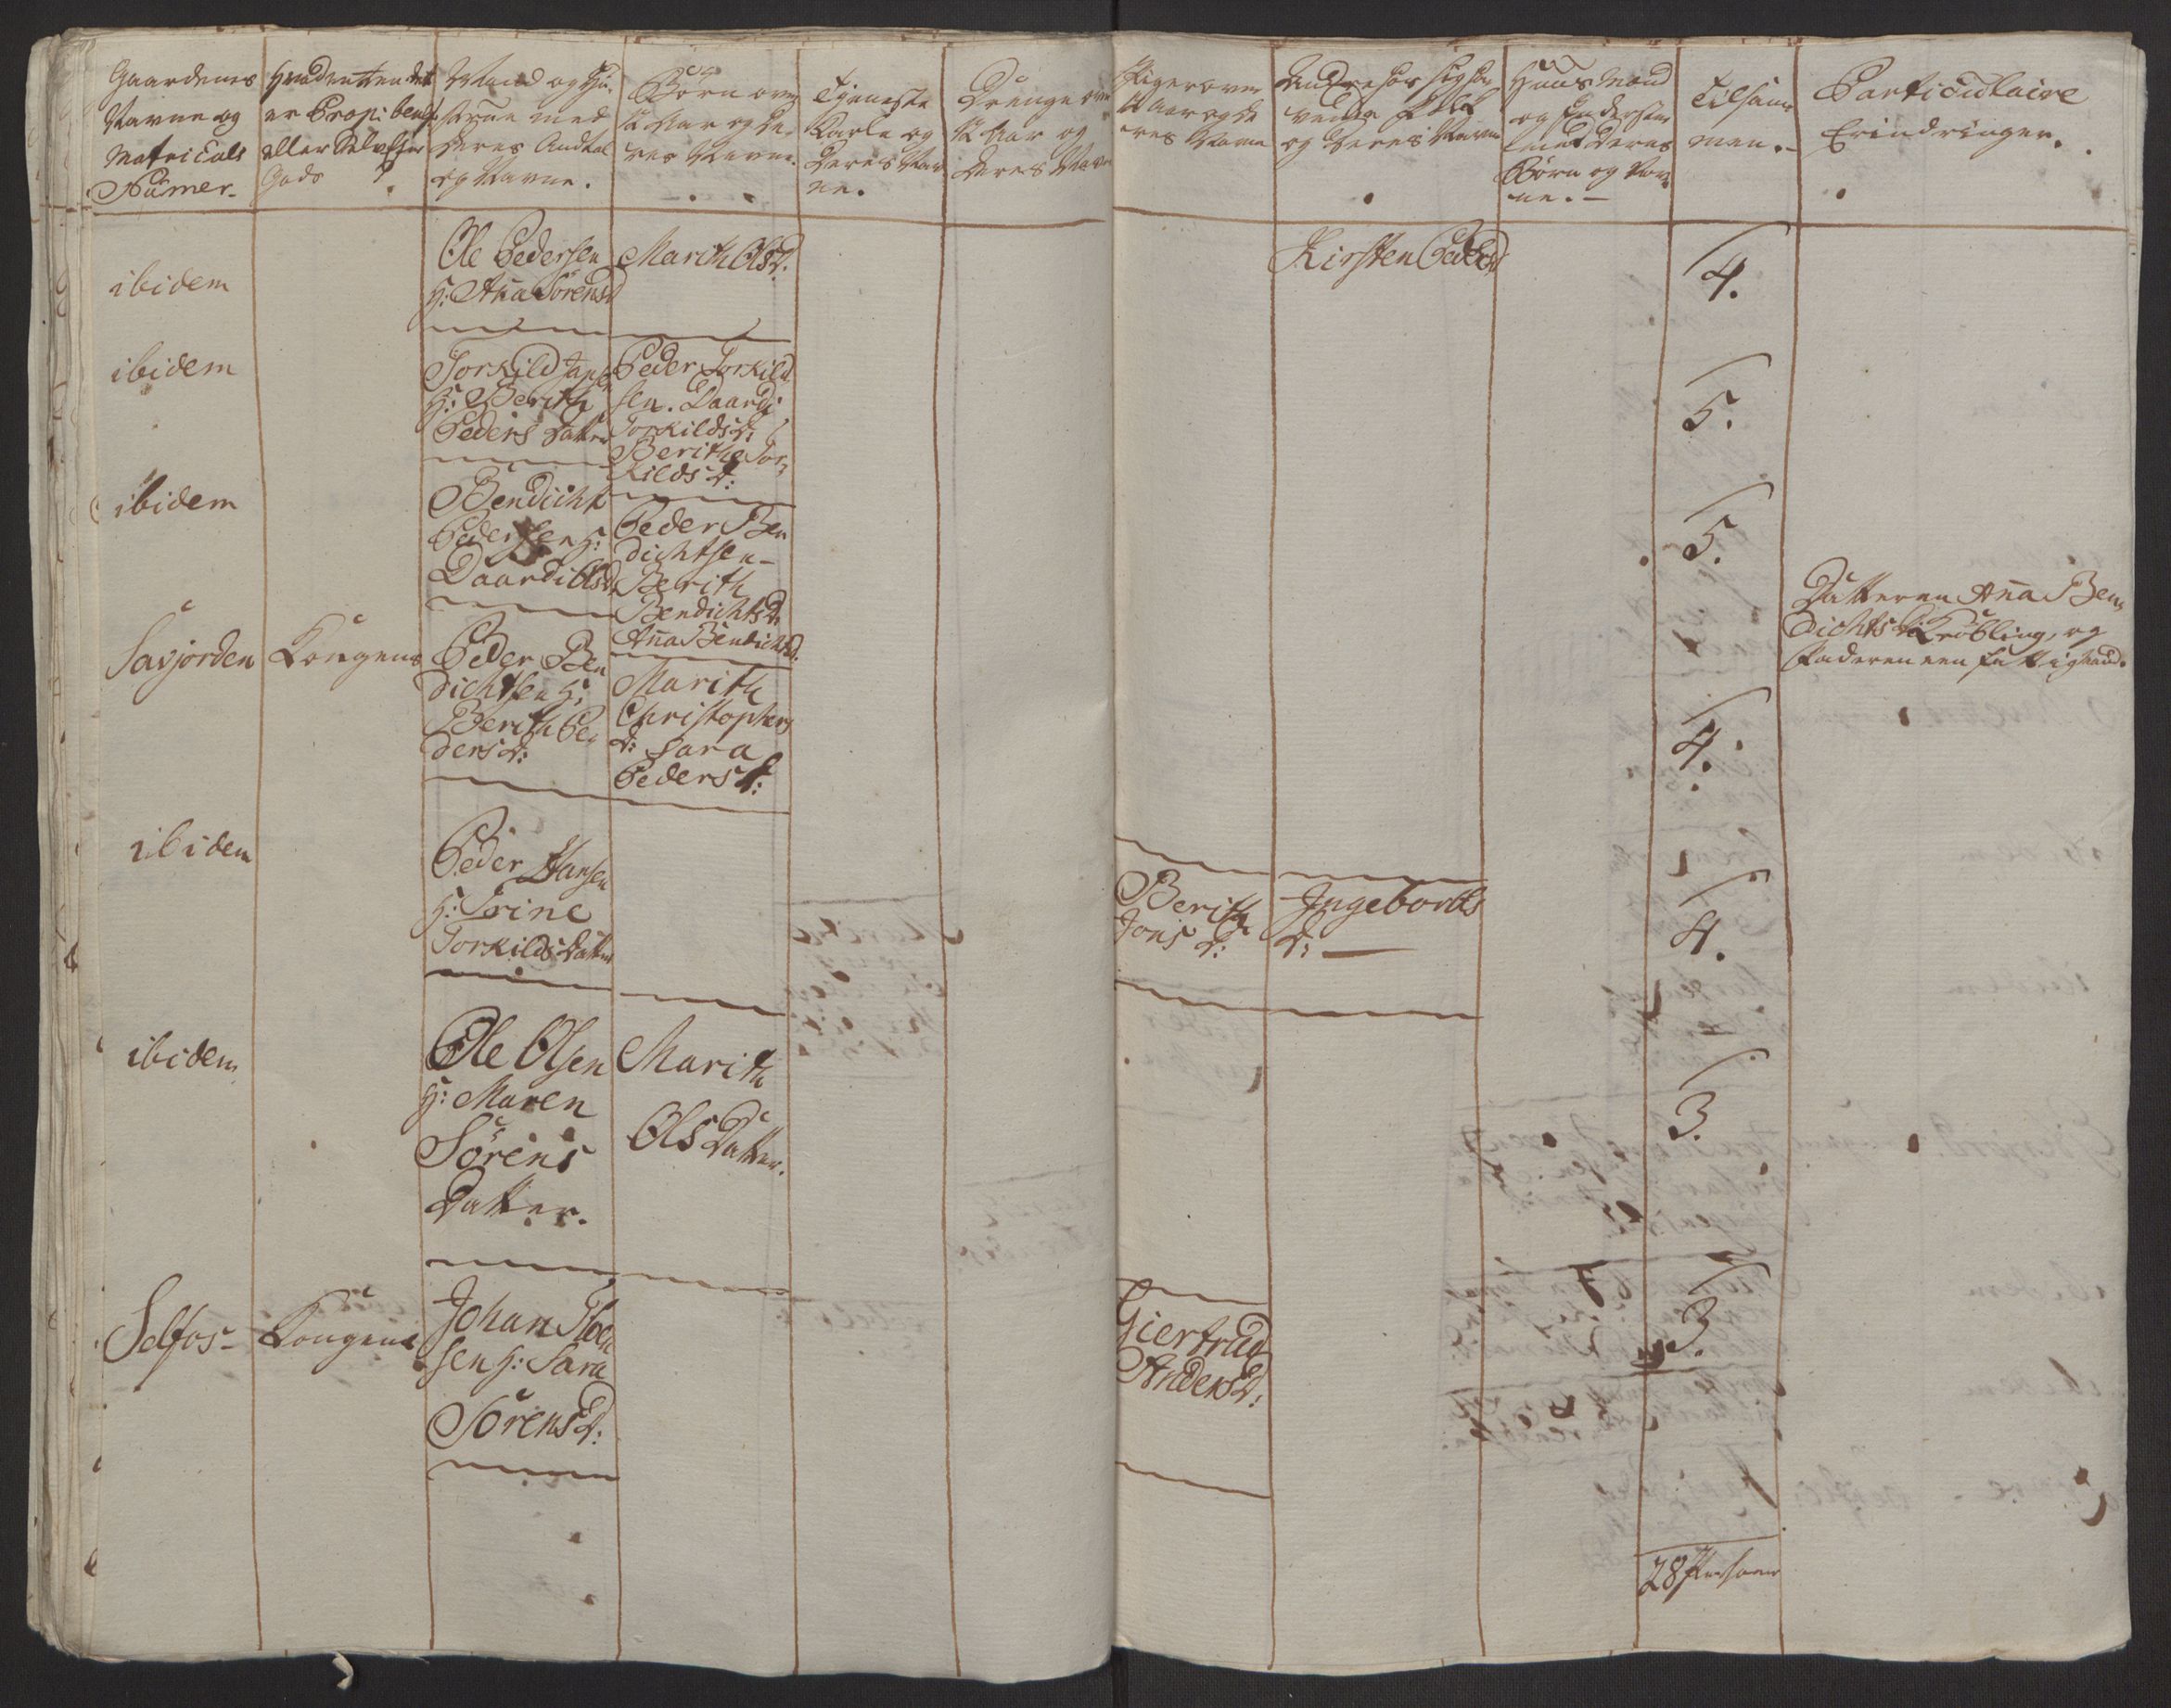 Gaardenes
Navne og
Matriculs
Numer.
hvad enten det
er Propr: benif:
eller Selv Ejer
Gods
Mand og Hu-
struue med
deres Andtal
og Navne.
Børn over
12 Aar og de-
res Navne.
Tjeneste
Karle og
deres Nav
ne.
Drenge over
12 Aar og
deres Navne
Piger over
12 Aar og de
res Navne
Andre hos sig ha-
vende Folk
og deres Navne
Huus Mænd
og Inderster
med deres
Børn og Nav-
ne.
Tilsam-
men.
Particulaire
Erindringer.
ibidem
Ole Pedersen
H: Aña Sørensd
Marith Olsd:
Kirsten Pedersd
4.
ibidem
Torkild Jansen
H: Berith
Peders Datter
Peder Torkild
sen. Daardi
Torkildsd:
Berithe Tor-
kildsd:
5.
ibidem
Bendicht
Pedersen H:
Daardi Olsd
Peder Ben
dichtsen-
Berith
Bendichtsd
Aña Bendichtsd.
5.
Datteren Aña Ben-
dichtsd: Krøbling, og
Faderen een fattig Mand.
Savjorden
Kongens
Peder Ben
dichtsen H:
Berith Pe-
dersd:
Marith
Christophers
d: Sara
Pedersd:
4.
ibidem
Peder Hansen
H: Trine
Torkilds Datter
Berith
Jons d:
Ingeborth
d:
4.
ibidem
Ole Olsen
H: Maren
Sørens
Datter.
Marith
Ols Datter.
3.
Selfos
Kongens
Johan Thom
sen H: Sara
Sørensd:
Giertrud
Andersd:
3.
28 Personer